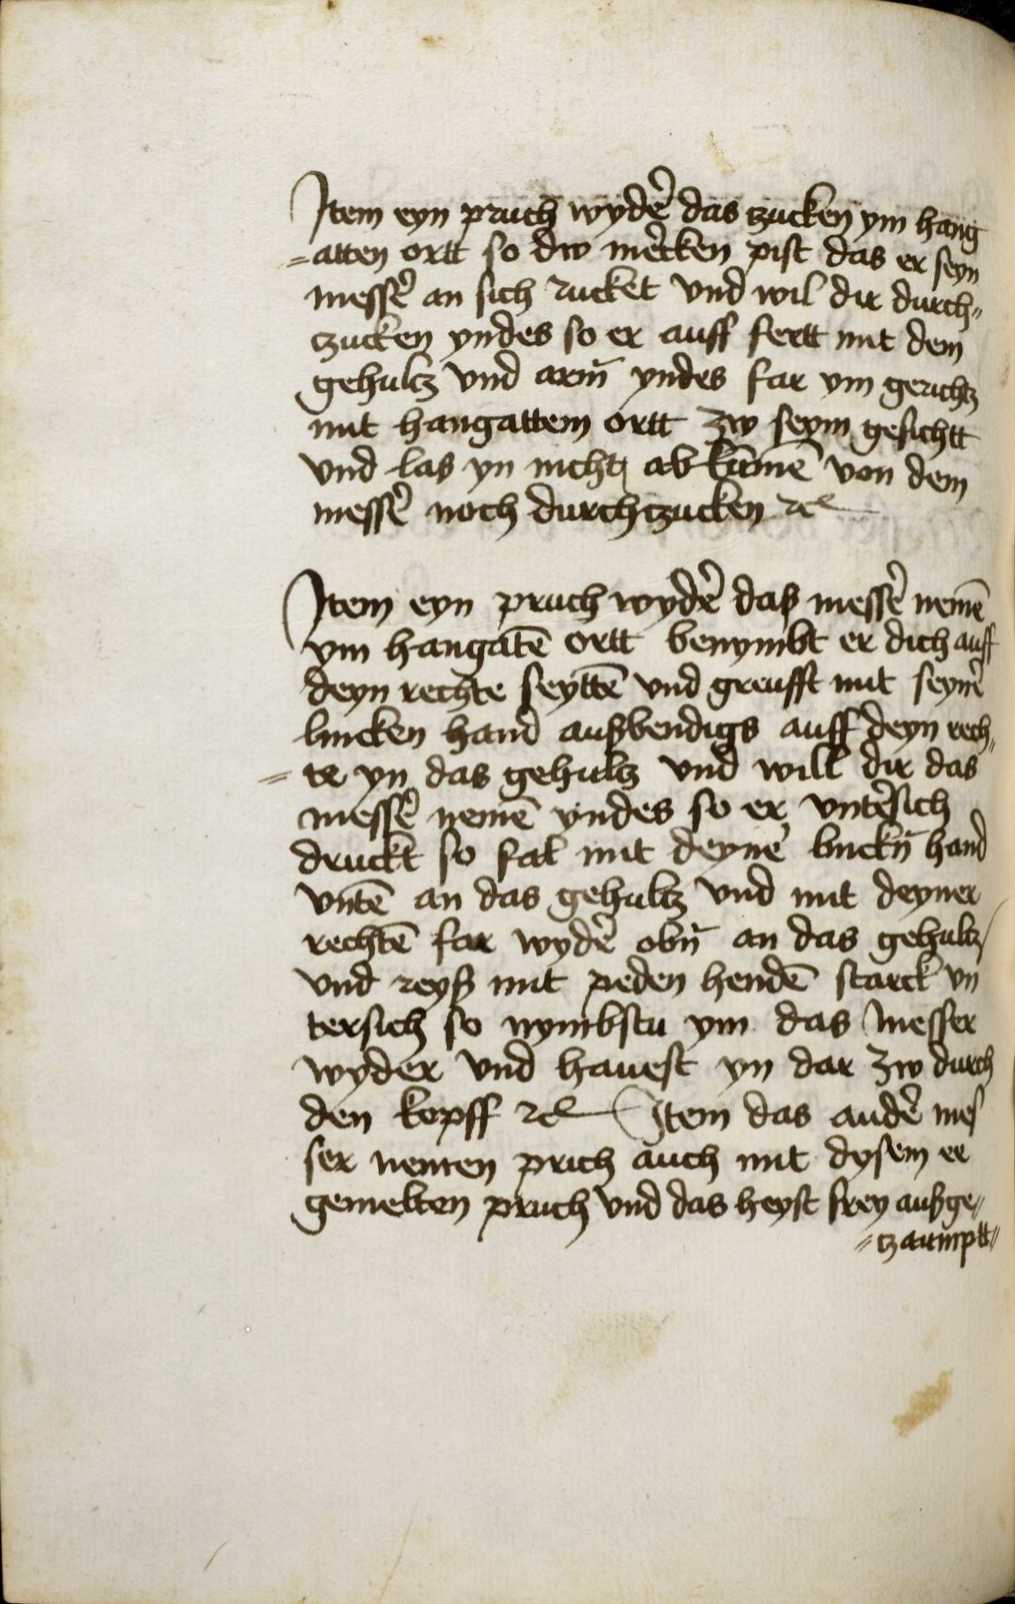 Item eyn pruch wyder̉ das tzucken ym hang
=atten ortt so dw mercken pist das er seyn
messer̉ an sich rucket vnd wil dir durch=
tzucken yndes so er auff fertt mit dem
gehultz vnd arm̄ yndes far ym gerichtz
mit hangattem ortt zw seym gesichtt
vnd las yn nicht abkūmē von dem
messer̉ noch durchtzucken ꝛc
Item eyn pruch wyder̉ daß messer̉ nemē
ym hangatē ortt benymbt er dich auff
deyn rechte seyttē vnd greufft mit seyner̉
lincken hand außbendigs auff deyn rech=
=te yn das gehultz vnd will dir das
messer̉ nemē yndes so er vnter̉sich
druckt so fal mit deyner̉ linckn̄ hand
vntē an das gehultz vnd mit deyner
rechtē far wyder̉ obn̄ an das gehultz
vnd reyß mit peden hendē starck vn
tersich so nymbstu ym das messer
wyder vnd hauest yn dar zw durch
den kopff ꝛc Item das ander̉ mes
ser nemen prich auch mit dysem er
gemelten pruch vnd das heyst frey außge=
=tzaumptt=